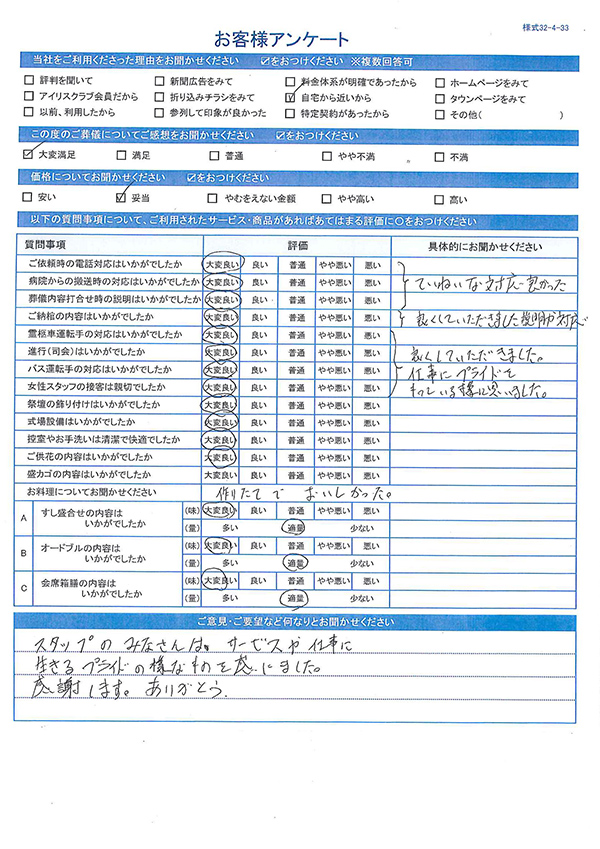 様式32-4-33
お客様アンケート
当社をご利用くださった理由をお聞かせください ☑をおつけください ※複数回答可
□ 評判を聞いて □ 新聞広告をみて □ 料金体系が明確であったから □ ホームページをみて
□ アイリスクラブ会員だから □ 折り込みチラシをみて ☑ 自宅から近いから □ タウンページをみて
□ 以前、利用したから □ 参列して印象が良かった □ 特定契約があったから □ その他( )
この度のご葬儀についてご感想をお聞かせください ☑をおつけください
☑ 大変満足 □ 満足 □ 普通 □ やや不満 □ 不満
価格についてお聞かせください ☑をおつけください
□ 安い ☑ 妥当 □ やむをえない金額 □ やや高い □ 高い
以下の質問事項について、ご利用されたサービス・商品があればあてはまる評価に○をおつけください
質問事項 評価 具体的にお聞かせください
ご依頼時の電話対応はいかがでしたか 大変良い 良い 普通 やや悪い 悪い
病院からの搬送時の対応はいかがでしたか 大変良い 良い 普通 やや悪い 悪い ていねいな対応良かった
葬儀内容打合せ時の説明はいかがでしたか 大変良い 良い 普通 やや悪い 悪い
ご納棺の内容はいかがでしたか 大変良い 良い 普通 やや悪い 悪い 良くしていただきました説明や対応で
霊柩車運転手の対応はいかがでしたか 大変良い 良い 普通 やや悪い 悪い
進行(司会)はいかがでしたか 大変良い 良い 普通 やや悪い 悪い 良くしていただきました。
バス運転手の対応はいかがでしたか 大変良い 良い 普通 やや悪い 悪い 仕事にプライドを
女性スタッフの接客は親切でしたか 大変良い 良い 普通 やや悪い 悪い もっている様に思いました。
祭壇の飾り付けはいかがでしたか 大変良い 良い 普通 やや悪い 悪い
式場設備はいかがでしたか 大変良い 良い 普通 やや悪い 悪い
控室やお手洗いは清潔で快適でしたか 大変良い 良い 普通 やや悪い 悪い
ご供花の内容はいかがでしたか 大変良い 良い 普通 やや悪い 悪い
盛カゴの内容はいかがでしたか 大変良い 良い 普通 やや悪い 悪い
お料理についてお聞かせください 作りたてで おいしかった。
A すし盛合せの内容は (味) 大変良い 良い 普通 やや悪い 悪い
いかがでしたか (量) 多い 適量 少ない
B オードブルの内容は (味) 大変良い 良い 普通 やや悪い 悪い
いかがでしたか (量) 多い 適量 少ない
C 会席箱膳の内容は (味) 大変良い 良い 普通 やや悪い 悪い
いかがでしたか (量) 多い 適量 少ない
ご意見・ご要望など何なりとお聞かせください
スタップのみなさんは。サービスや仕事に
生きるプライドの様なものを感じました。
感謝します。ありがとう.